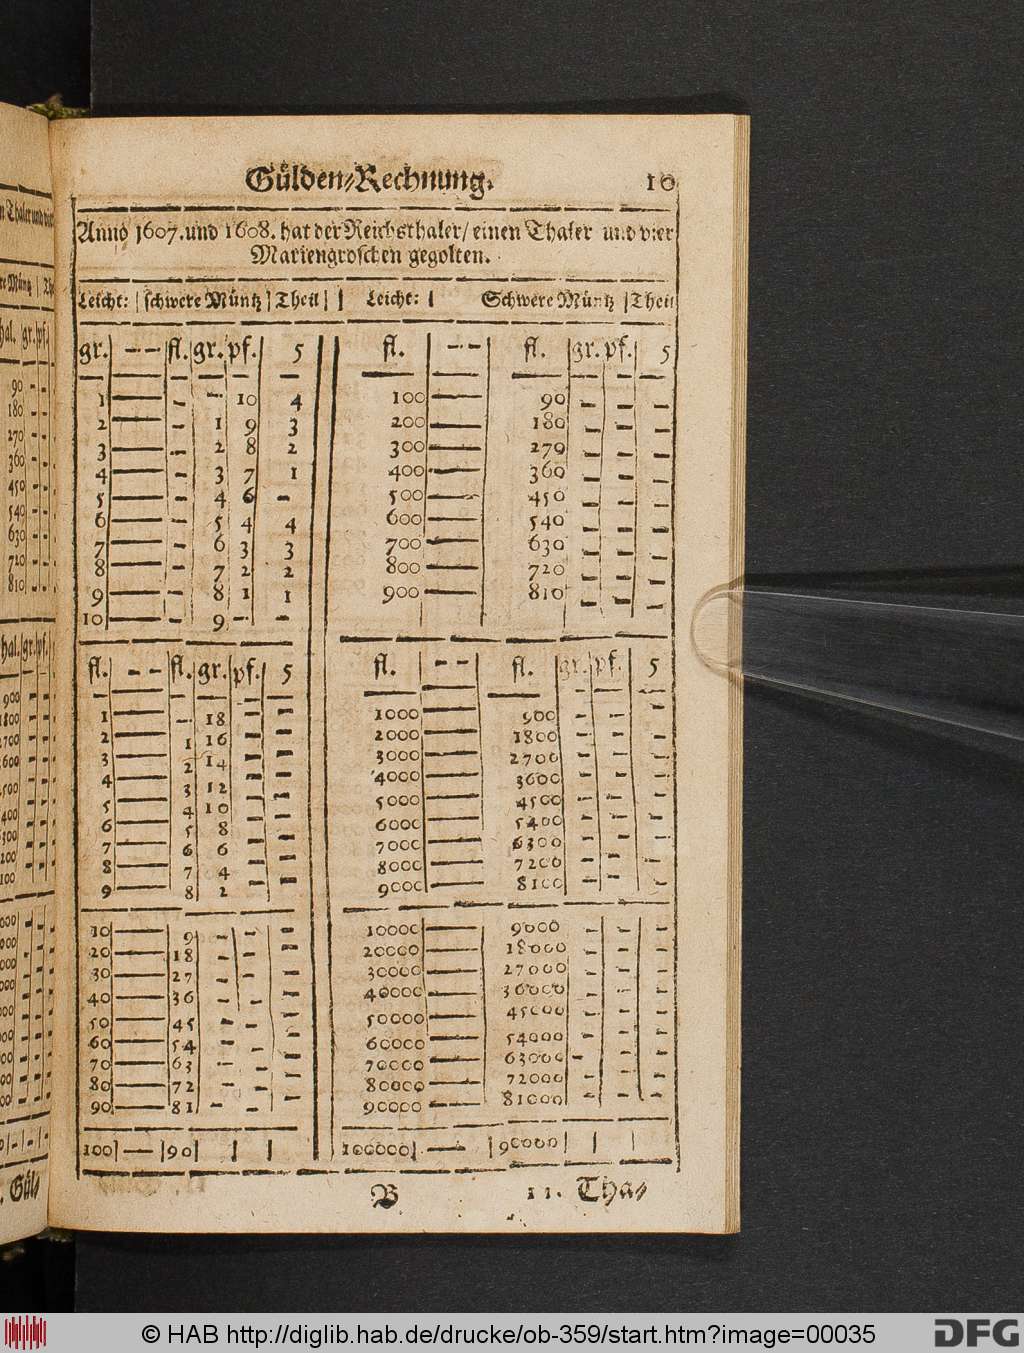 Gůlden-Rechnung. 10
Anno 1607. und 1608. hat der Reichsthaler / einen Thaler und vier
Mariengroschen gegolten.
Leicht: | schwere Müntz | Theil | | Leicht: | Schwere Müntz | Theil
gr. — — fl. gr. pf. 5 fl. — — fl. gr. pf. 5
1 — - - 10 4 100 — 90 - - -
2 — - 1 9 3 200 — 180 - - -
3 — - 2 8 2 300 — 270 - - -
4 — - 3 7 1 400 — 360 - - -
5 — - 4 6 - 500 — 450 - - -
6 — - 5 4 4 600 — 540 - - -
7 — - 6 3 3 700 — 630 - - -
8 — - 7 2 2 800 — 720 - - -
9 — - 8 1 1 900 — 810 - - -
10 — - 9 - -
fl. - - fl. gr. pf. 5 fl. - - fl. gr. pf. 5
1 — - 18 - - 1000 — 900 - - -
2 — 1 16 - - 2000 — 1800 - - -
3 — 2 14 - - 3000 — 2700 - - -
4 — 3 12 - - 4000 — 3600 - - -
5 — 4 10 - - 5000 — 4500 - - -
6 — 5 8 - - 6000 — 5400 - - -
7 — 6 6 - - 7000 — 6300 - - -
8 — 7 4 - - 8000 — 7200 - - -
9 — 8 2 - - 9000 — 8100 - - -
10 — 9 - - - 10000 — 9000 - - -
20 — 18 - - - 20000 — 18000 - - -
30 — 27 - - - 30000 — 27000 - - -
40 — 36 - - - 40000 — 36000 - - -
50 — 45 - - - 50000 — 45000 - - -
60 — 54 - - - 60000 — 54000 - - -
70 — 63 - - - 70000 — 63000 - - -
80 — 72 - - - 80000 — 72000 - - -
90 — 81 - - - 90000 — 81000 - - -
100 | — | 90 | | | 100000 | — | 90000 | |
B 11. Tha-
© HAB http://diglib.hab.de/drucke/ob-359/start.htm?image=00035
DFG